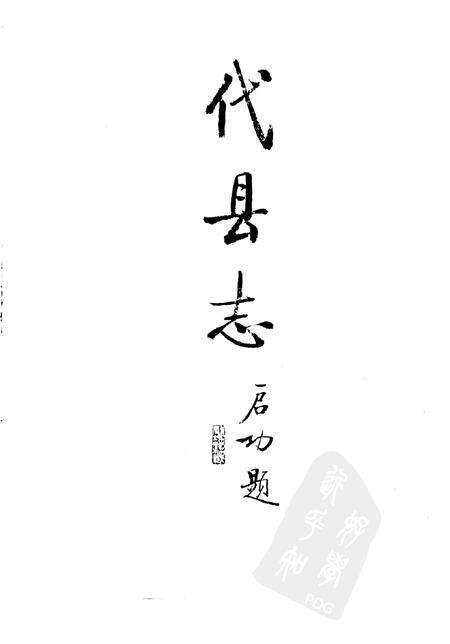 代县志
启功题
PDG